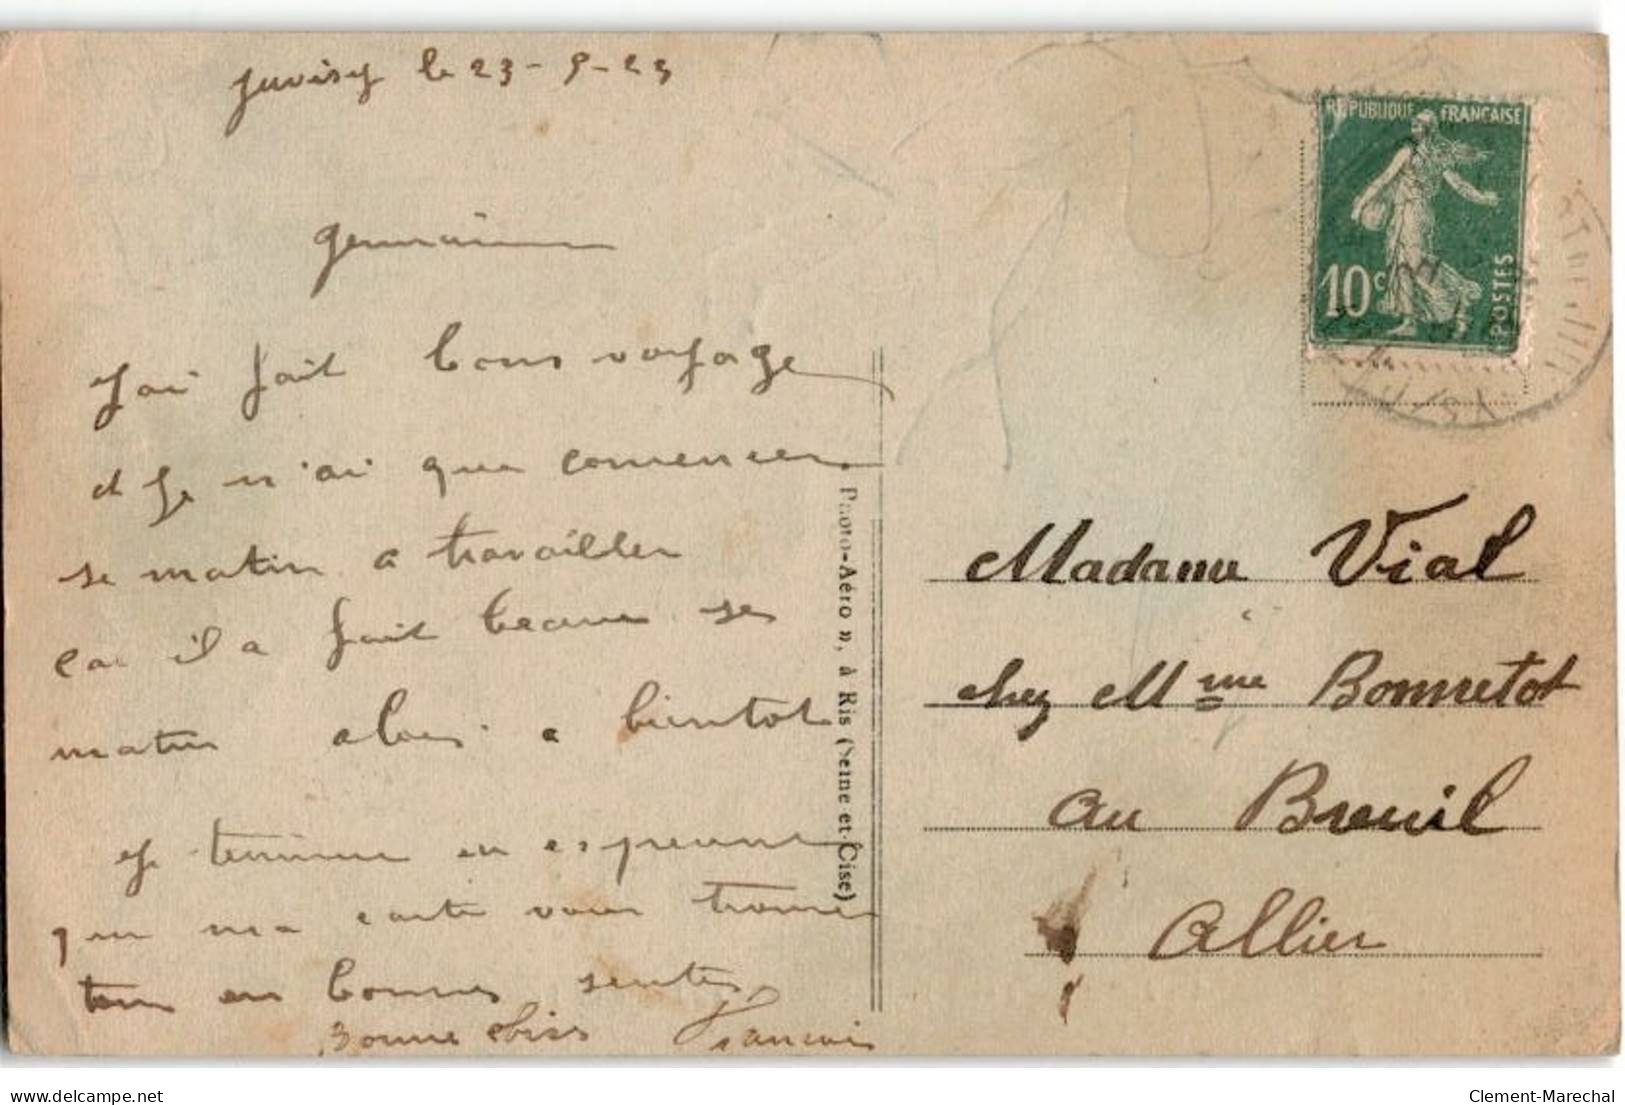 Juvisy le 23-9-23
Germaine
J'ai fait bons voyage
et je n'ai que comencer
se matin a travailler
car il a fait beaux se
matin alors a bientot
Je termine en esperant
que ma carte vous trouve
tous en bonnes sentés
Bonne François
"Photo-Aéro", à Ris (Seine-et-Oise)
REPUBLIQUE FRANÇAISE
10c
POSTES
Madame Vial
chez Mme Bonnetot
au Breuil
Allier
delcampe.net
Clement-Marechal